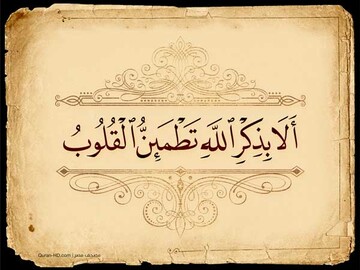 أَلَا بِذِكْرِ ٱللَّهِ تَطْمَئِنُّ ٱلْقُلُوبُ
Quran-HD.com |